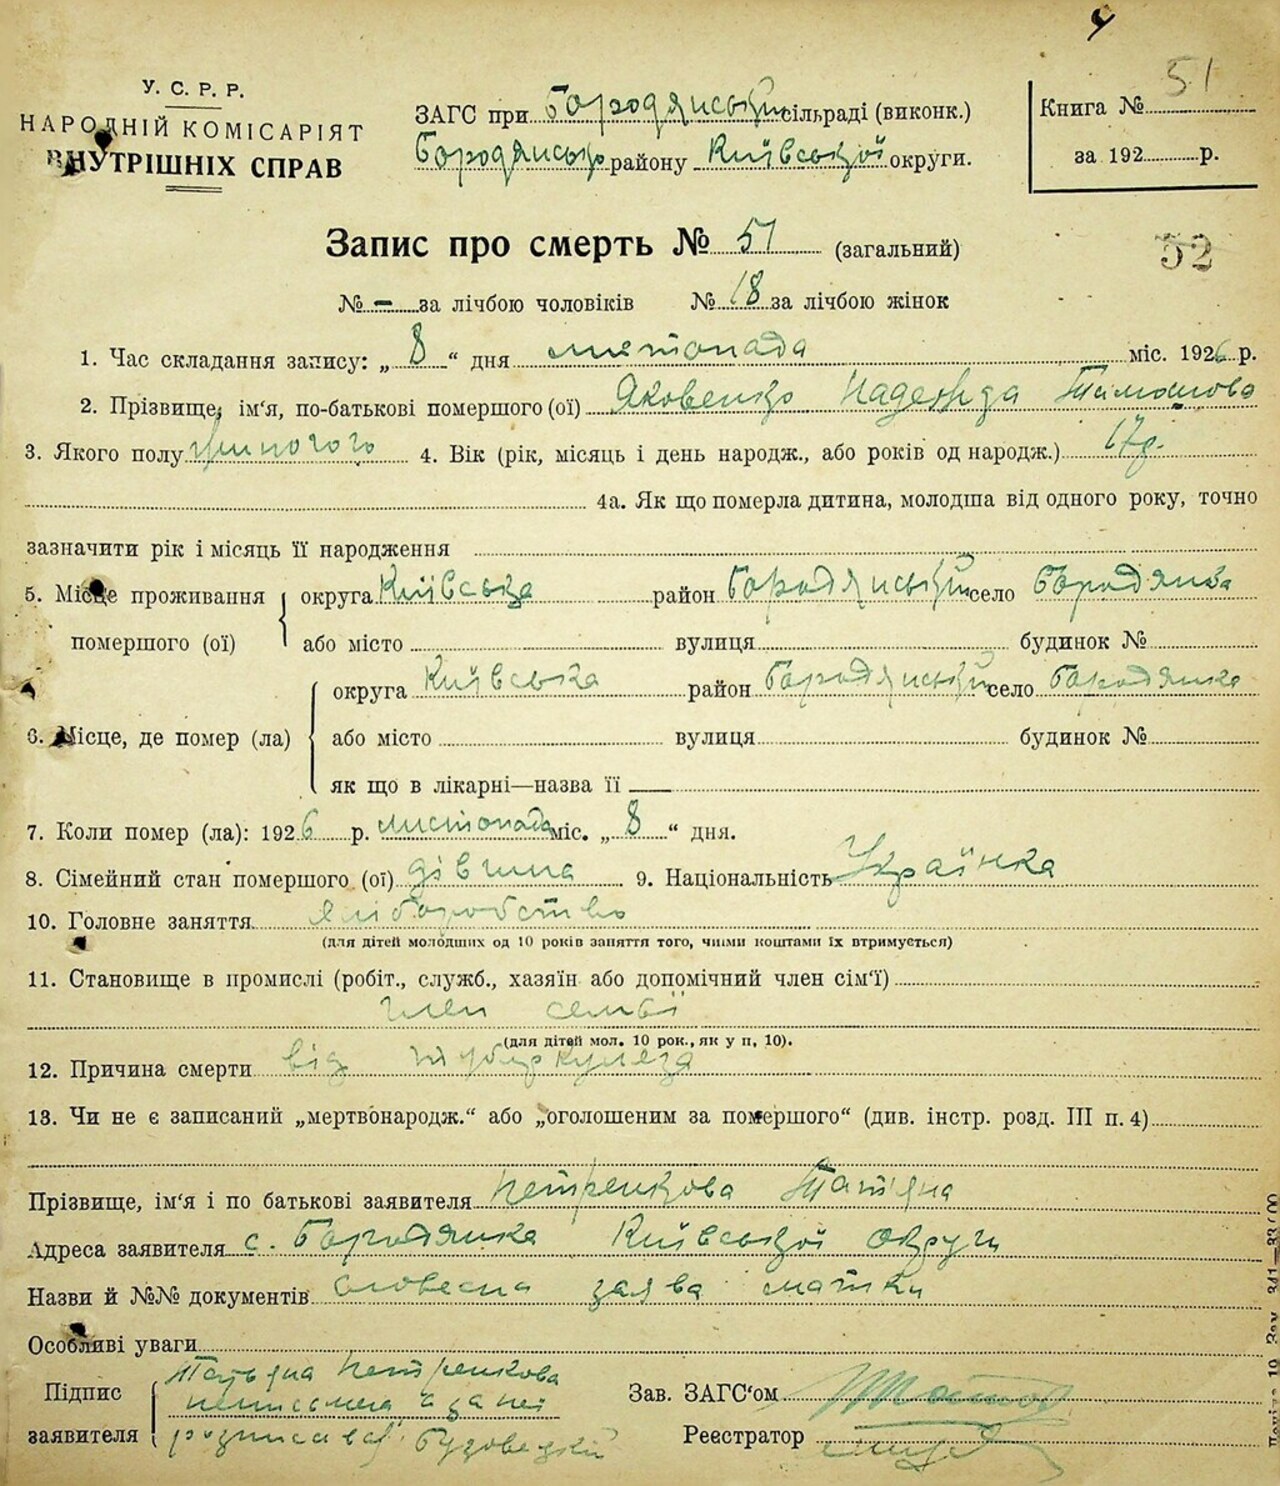 У. С. Р. Р.
НАРОДНІЙ КОМІСАРІЯТ
ВНУТРІШНІХ СПРАВ
ЗАГС при Бородянській сільраді (виконк.)
Бородянсько району Київської округи.
Книга № 51
за 192 р.
Запис про смерть № 51 (загальний)
52
№ - за лічбою чоловіків № 18 за лічбою жінок
1. Час складання запису: „ 8 “ дня листопада міс. 1926 р.
2. Прізвище, ім‘я, по-батькові помершого (ої) Яковенко Надежда Тимошова
3. Якого полу жіночого 4. Вік (рік, місяць і день народж., або років од народж.) 17р.
4а. Як що померла дитина, молодша від одного року, точно
зазначити рік і місяць її народження
5. Місце проживання помершого (ої) округа Київська район Бородянський село Бородянка
або місто вулиця будинок №
6. Місце, де помер (ла) округа Київська район Бородянський село Бородянка
або місто вулиця будинок №
як що в лікарні—назва її
7. Коли помер (ла): 1926 р. листопада міс. „ 8 “ дня.
8. Сімейний стан помершого (ої) дівчина 9. Національність Українка
10. Головне заняття хліборобство
(для дітей молодших од 10 років заняття того, чиїми коштами їх втримується)
11. Становище в промислі (робіт., служб., хазяїн або допомічний член сім‘ї)
член семьї
(для дітей мол. 10 рок., як у п, 10).
12. Причина смерти від туберкульоза
13. Чи не є записаний „мертвонародж.“ або „оголошеним за помершого“ (див. інстр. розд. III п. 4)
Прізвище, ім‘я і по батькові заявителя Петренкова Татіяна
Адреса заявителя с. Бородянка Київської округи
Назви й №№ документів словесна заява матки
Особливі уваги
Підпис заявителя Татьяна Петренкова
неписьмена а за неї
розписався Будовецький
Зав. ЗАГС‘ом
Реєстратор